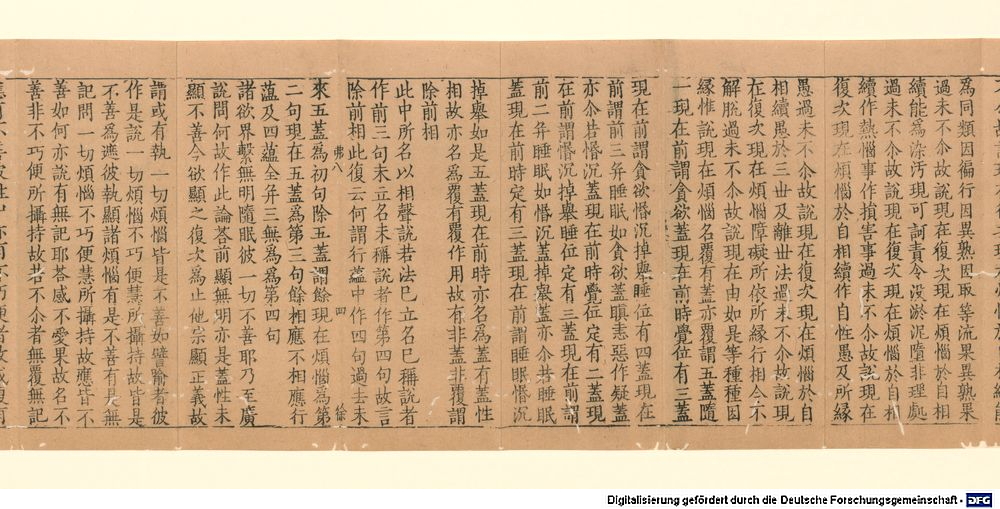 為同類因徧行因異熟因取等流果異熟果
過未不尒故說現在復次現在煩惱於自相
續能為染汚現可訶責令没淤泥墮非理處
過未不尒故說現在復次現在煩惱於自相
續作熱惱事作損害事過未不尒故說現在
復次現在煩惱於自相續作自性愚及所縁
愚過未不尒故說現在復次現在煩惱於自
相續愚於三世及離世法過未不尒故說現
在復次現在煩惱障礙所依所縁行相令不
解脫過未不尒故說現在由如是等種種因
縁惟說現在煩惱名覆有蓋亦覆謂五蓋隨
一現在前謂貪欲蓋現在前時覺位有三蓋
現在前謂貪欲惛沉掉舉睡位有四蓋現在
前謂前三并睡眠如貪欲蓋瞋恚惡作疑蓋
亦尒若惛沉蓋現在前時覺位定有二蓋現
在前謂惛沉掉舉睡位定有三蓋現在前謂
前二并睡眠如惛沉蓋掉舉蓋亦尒共睡眠
蓋現在前時定有三蓋現在前謂睡眠惛沉
掉舉如是五蓋現在前時亦名為蓋有蓋性
相故亦名為覆有覆作用故有非蓋非覆謂
除前相
此中所名以相聲說若法已立名已稱說者
作前三句未立名未稱說者作第四句故言
除前相此復云何謂行蘊中作四句過去未
弗八 四 徐
來五蓋為初句除五蓋謂餘現在煩惱為第
二句現在五蓋為第三句餘相應不相應行
蘊及四蘊全并三無為為第四句
諸欲界繫無明隨眠彼一切不善耶乃至廣
說問何故作此論荅前顯無明亦是蓋性未
顯不善今欲顯之復次為止他宗顯正義故
謂或有執一切煩惱皆是不善如譬喻者彼
作是說一切煩惱不巧便慧所攝持故皆是
不善為遮彼執顯諸煩惱有是不善有是無
記問一切煩惱不巧便慧所攝持故應皆不
善如何亦說有無記耶荅感不愛果故名不
善非不巧便所攝持故若不尒者無覆無記
Digitalisierung gefördert durch die Deutsche Forschungsgemeinschaft - DFG